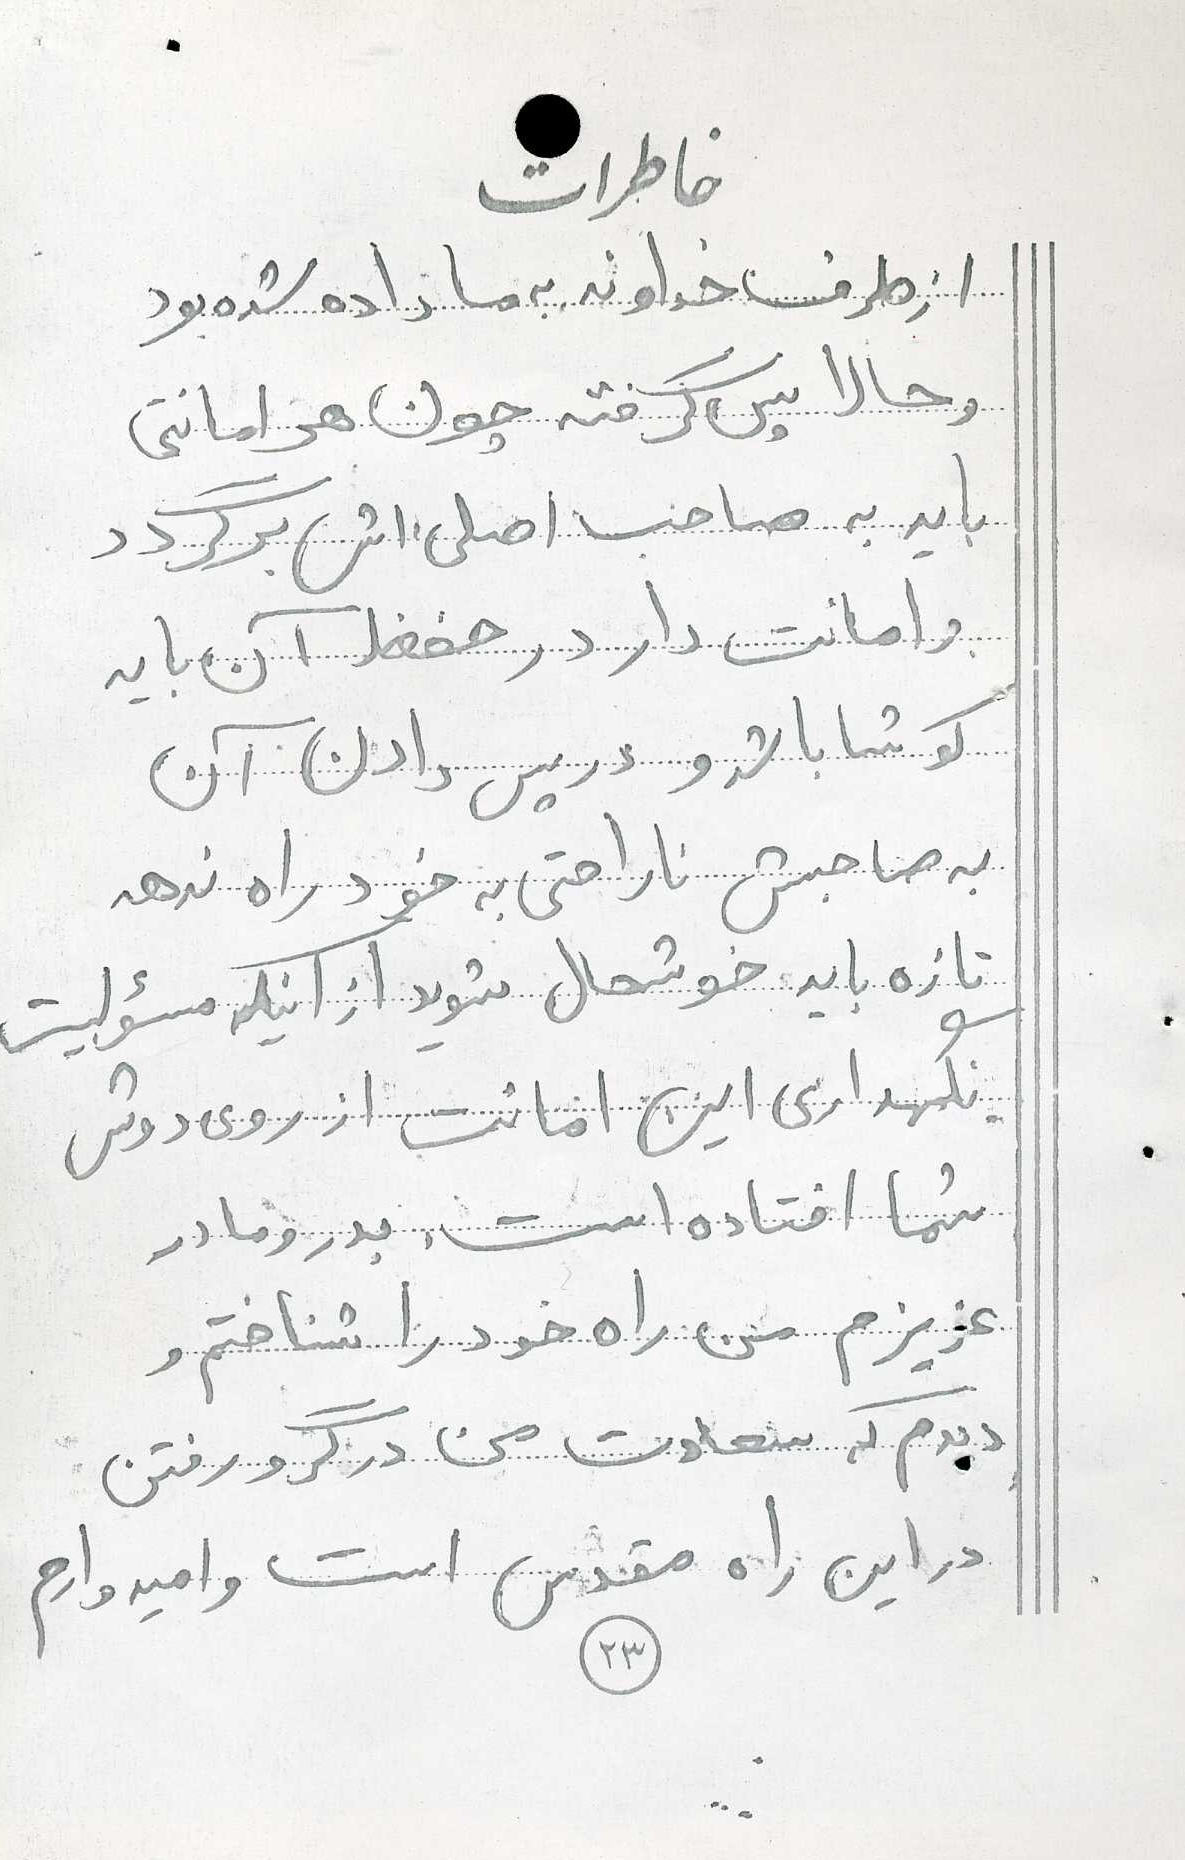 خاطرات
از طرف خداوند به ما داده شده بود
و حالا پس گرفته چون هر امانتی
باید به صاحب اصلی اش برگردد
و امانت دار در حفظ آن باید
کوشا باشد و در پس دادن آن
به صاحبش ناراحتی به خود راه ندهد
تازه باید خوشحال شوید از اینکه مسئولیت
نگهداری این امانت از روی دوش
شما افتاده است. پدر و مادر
عزیزم من راه خود را شناختم و
دیدم که سعادت من در گرو رفتن
در این راه مقدس است و امیدوارم
۲۳